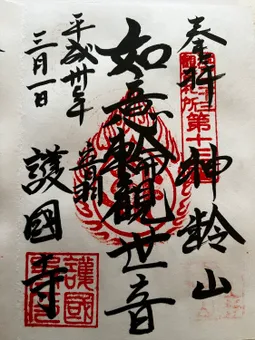 奉拝
神齢山
如意輪観世音
音羽
護國寺
平成卅年
三月一日
護國